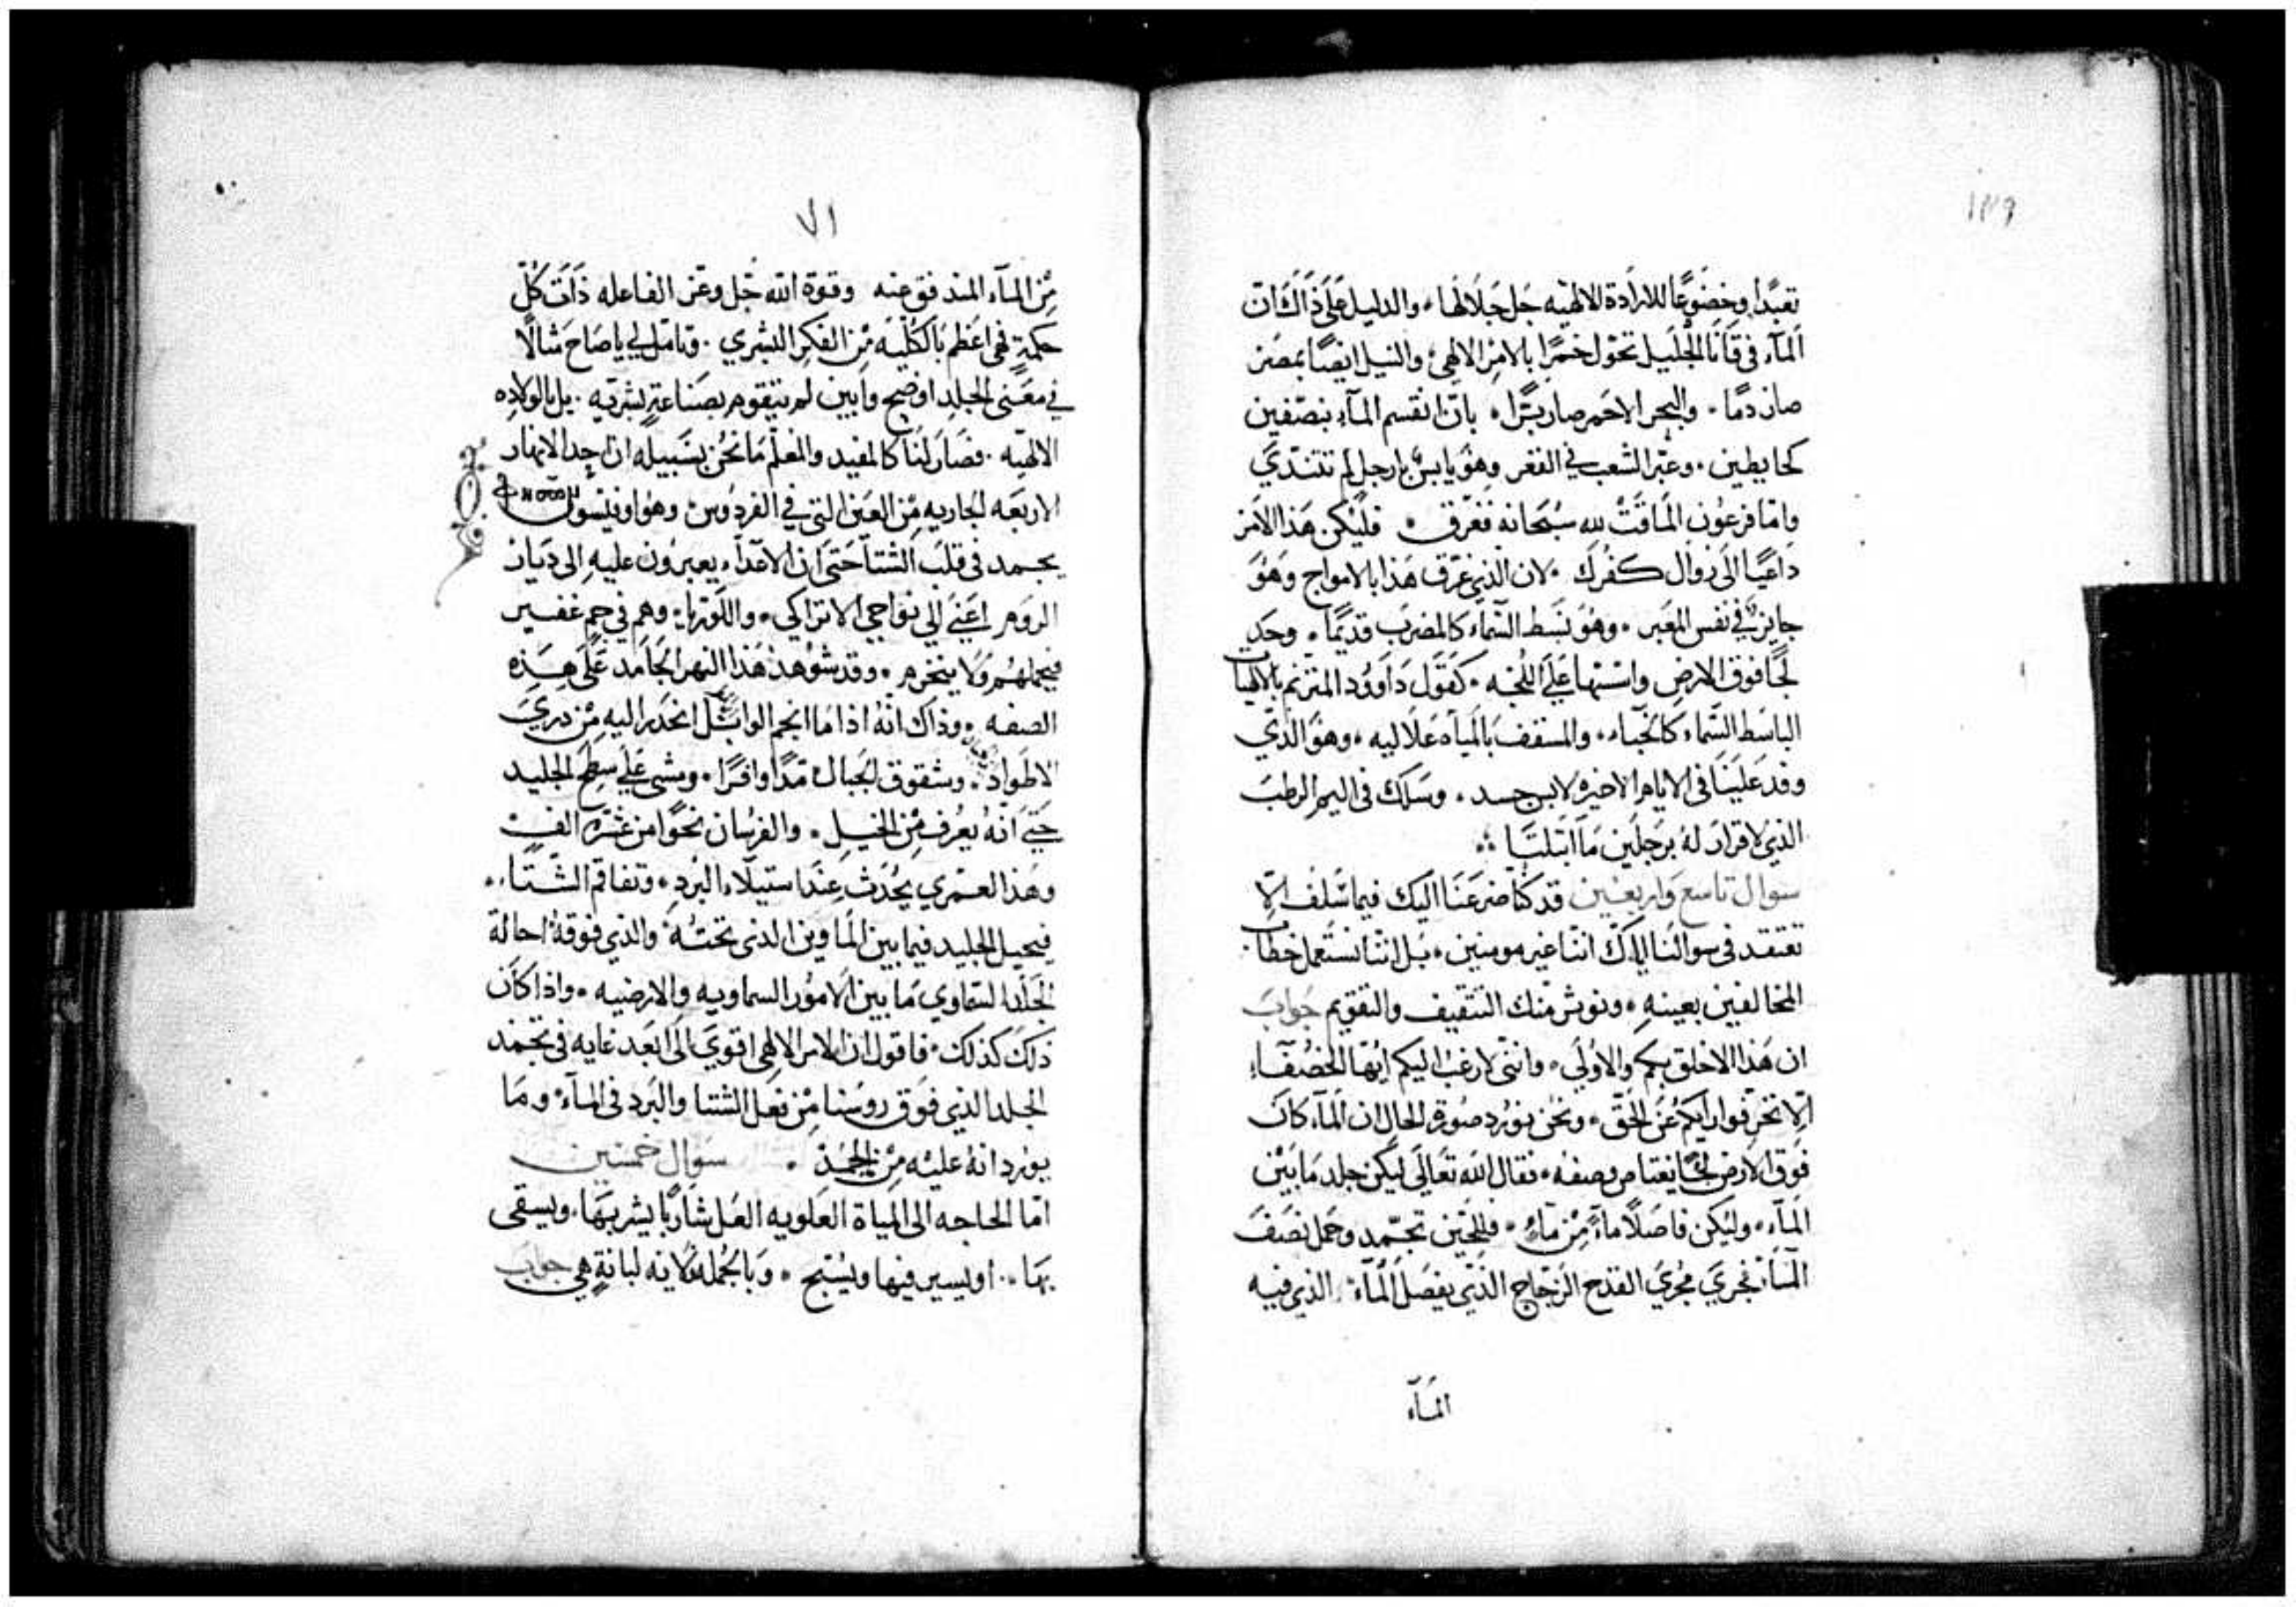 ١٣٩
تعبدًا وخضوعًا للارادة الالهيه جل جلالها، والدليل على ذالك ان
المآء في قانا الجليل تحول خمرًا بالامر الالهي، والنيل ايضًا بمصر
صار دمًا، والبحر الاحمر صار برًا، بان انقسم المآء بنصفين
كحايطين، وعبر الشعب في القعر وهو يابس بارجل لم تتندي
واما فرعون الماقت لله سبحانه فغرق، فليكن هذا الامر
داعيًا الى زوال كفرك، لان الذي غرق هذا بالامواج وهو
جايز في نفس المعبر، وهو بسط السماء كالمضرب قديمًا، وحد
لجًا فوق الارض واسسها على اللجه، كقول داوود المترنم بالالهيات
الباسط السماء كالخباء، والمسقف بالمياه علاليه، وهو الذي
وفد علينا في الايام الاخيره لابس جسد، وسلك في اليم الرطب
الذي لا قرار له برجلين ما ابتلتا
سوال تاسع واربعين قد كنا ضرعنا اليك فيما سلف الا
تعتقد في سوالنا اياك اننا غير مومنين، بل اننا نستعمل خطاب
المخالفين بعينه، ونوثر منك التثقيف والتقويم جواب
ان هذا الاخلق بكم والاولى، وانني لارغب اليكم ايها الحصفآء
الا تحرفوا رايكم عن الحق، ونحن نورد صورة الحال ان المآء كان
فوق الارض لجًا يعتاص وصفه، فقال الله تعالى ليكن جلد ما بين
المآء، وليكن فاصلًا مآء من مآء، فللحين تجمد وحمل نصف
المآء، فجرى مجرى القدح الزجاج الذي يفصل المآء الذي فيه
المآء
٧١
من المآء المندفق عنه وقوة الله جل وعز الفاعله ذات كل
حكمة فهي اعظم بالكليه من الفكر البشري، وتامل لي ياصاح مثالًا
في معنى الجلد اوضح وابين لم يتقوم بصناعة بشريه، بل بالولاده
الالهيه، فصار لنا كالمفيد والمعلم ما نحن بسبيله ان احد الانهار
الاربعه الجاريه من العين التي في الفردوس وهو اوفيسون
يجمد في قلب الشتا حتى ان الاعدآء يعبرون عليه الى ديار
الروم اعني الى نواحي الاتراكي، واللوترا، وهم في جم غفير
فيحملهم ولا ينخرم، وقد شوهد هذا النهر الجامد على هذه
الصفه، وذاك انه اذا ما انجم الوابل انحدر اليه من ذري
الاطواد، وشقوق الجبال مدًا وافرًا، ومشى على سطح الجليد
حتى انه يعرف من الخيل، والفرسان نحوًا من عشرة الف
وهذا العمري يحدث عند استيلآء البرد، وتفاقم الشتا،
فيحيل الجليد فيما بين الماوين الذي تحته والذي فوقه احالة
الجلد السماوي ما بين الامور السماويه والارضيه، واذا كان
ذلك كذلك، فاقول ان الامر الالهي اقوى الى ابعد غايه في تجمد
الجلد الذي فوق روسنا من فعل الشتا والبرد في المآء، وما
يورد انه عليه من الجمد سوال خمسين
اما الحاجه الى المياة العلويه العل شاربًا يشربها، ويسقى
بها، او يسير فيها ويسبح، وبالجمله لايه لبانة هي جواب